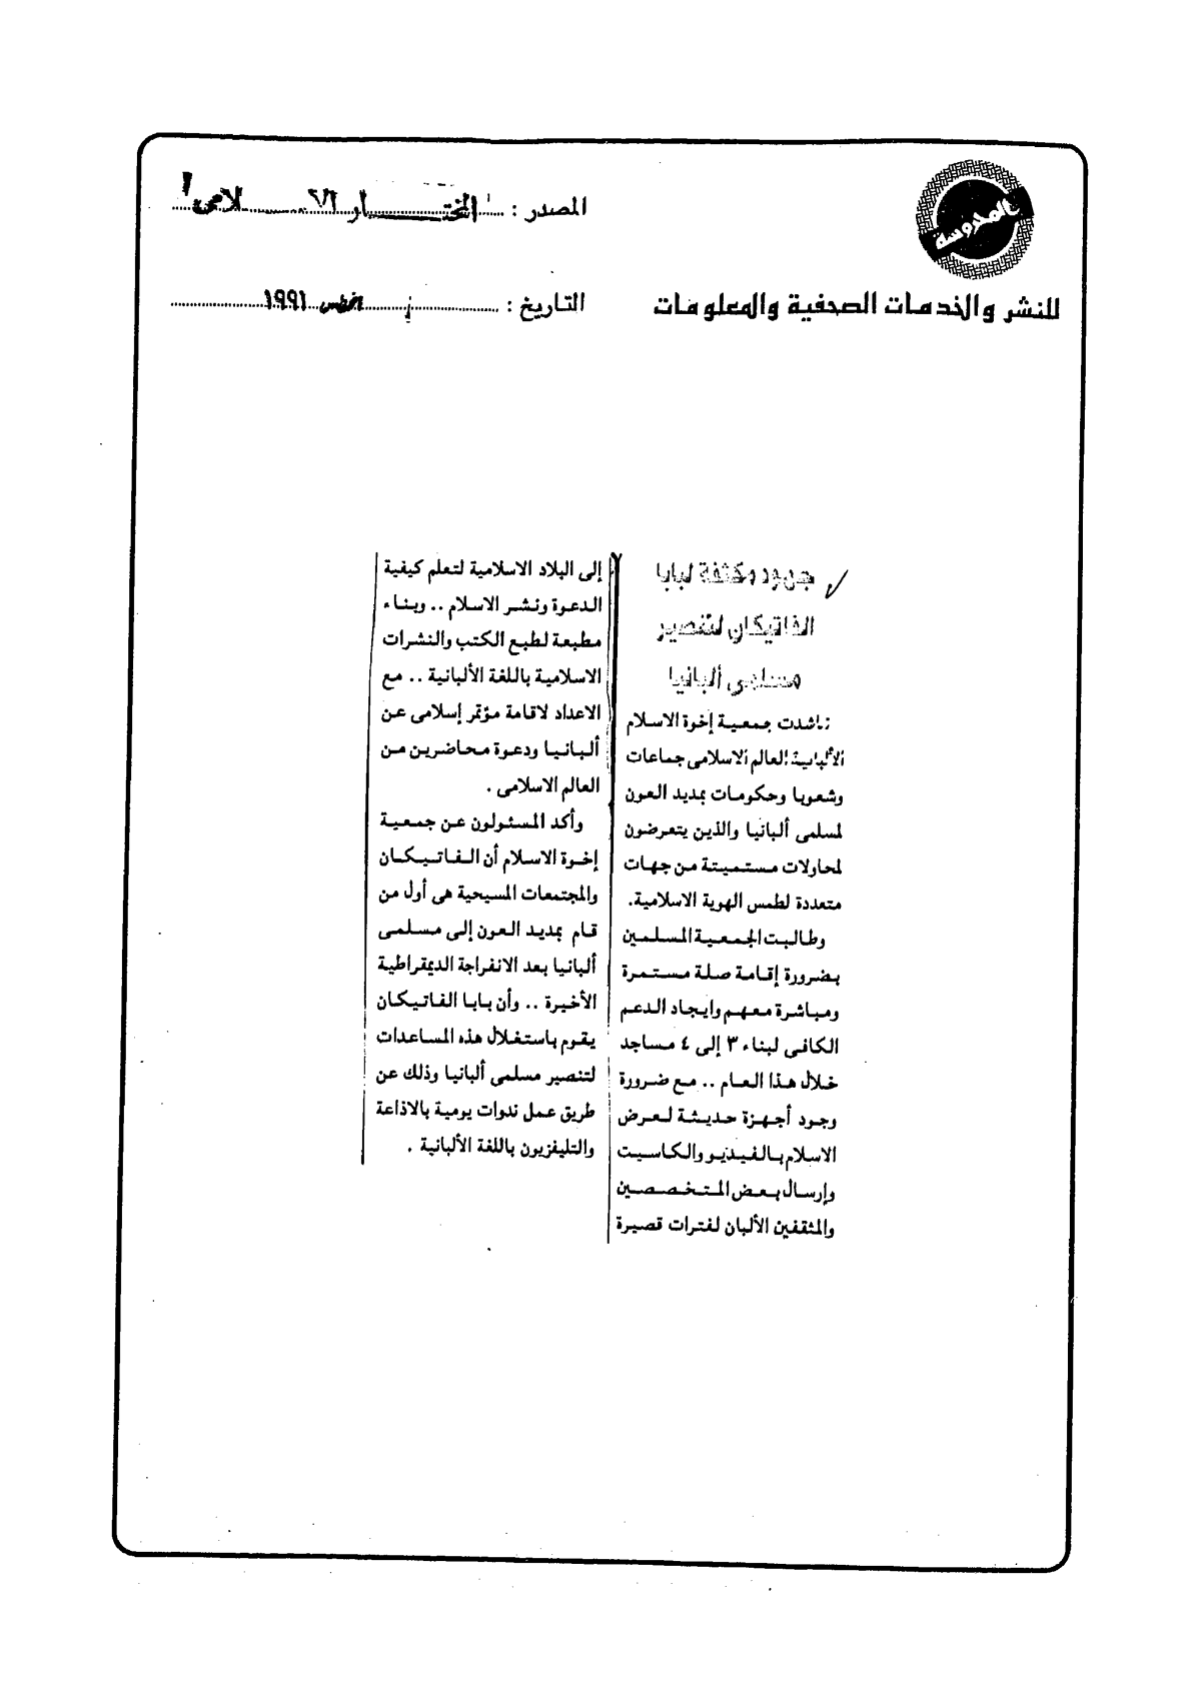 بالمحروسة
للنشر والخدمات الصحفية والمعلومات
المصدر : المختار الاسلامى
التاريخ : اغسطس ١٩٩١
جهود مكثفة لبابا
الفاتيكان لتنصير
مسلمى ألبانيا
ناشدت جمعية إخوة الاسلام
الألبانية العالم الاسلامى جماعات
وشعوبا وحكومات بمديد العون
لمسلمى ألبانيا والذين يتعرضون
لمحاولات مستميتة من جهات
متعددة لطمس الهوية الاسلامية.
وطالبت الجمعية المسلمين
بضرورة إقامة صلة مستمرة
ومباشرة معهم وايجاد الدعم
الكافى لبناء ٣ إلى ٤ مساجد
خلال هذا العام .. مع ضرورة
وجود أجهزة حديثة لعرض
الاسلام بالفيديو والكاسيت
وإرسال بعض المتخصصين
والمثقفين الألبان لفترات قصيرة
إلى البلاد الاسلامية لتعلم كيفية
الدعوة ونشر الاسلام .. وبناء
مطبعة لطبع الكتب والنشرات
الاسلامية باللغة الألبانية .. مع
الاعداد لاقامة مؤتمر إسلامى عن
ألبانيا ودعوة محاضرين من
العالم الاسلامى .
وأكد المسئولون عن جمعية
إخوة الاسلام أن الفاتيكان
والمجتمعات المسيحية هى أول من
قام بمديد العون إلى مسلمى
ألبانيا بعد الانفراجة الديمقراطية
الأخيرة .. وأن بابا الفاتيكان
يقوم باستغلال هذه المساعدات
لتنصير مسلمى ألبانيا وذلك عن
طريق عمل ندوات يومية بالاذاعة
والتليفزيون باللغة الألبانية .